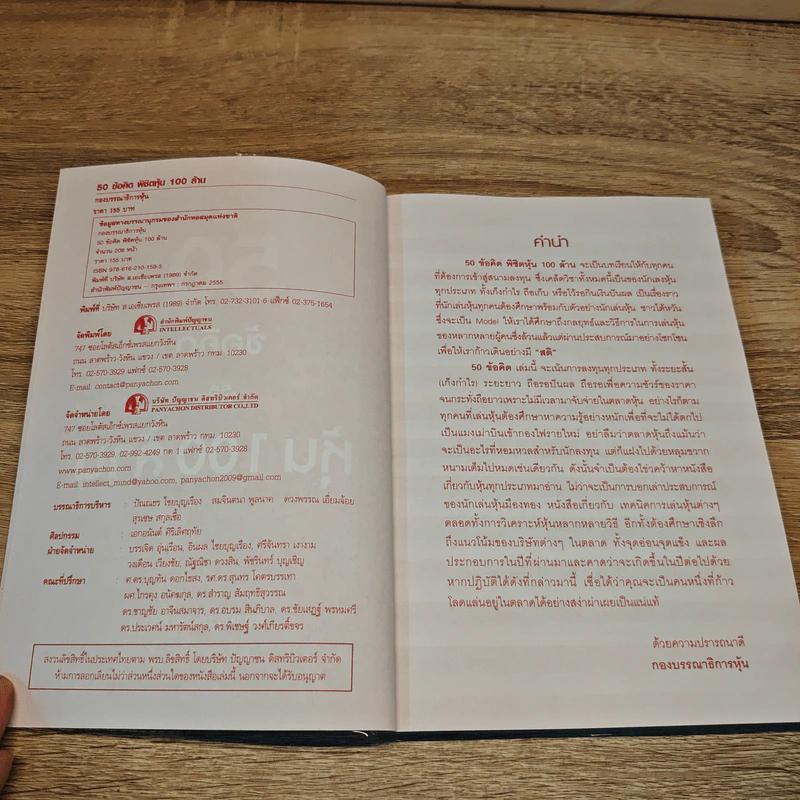 50 ข้อคิด พิชิตหุ้น 100 ล้าน
กองบรรณาธิการหุ้น
ราคา 155 บาท
ข้อมูลทางบรรณานุกรมของสำนักหอสมุดแห่งชาติ
กองบรรณาธิการหุ้น
50 ข้อคิด พิชิตหุ้น 100 ล้าน
จำนวน 208 หน้า
ราคา 155 บาท
ISBN 978-616-210-159-5
พิมพ์ที่ บริษัท ส.เอเชียเพรส (1989) จำกัด
สำนักพิมพ์ปัญญาชน - กรุงเทพฯ : กรกฎาคม 2555
พิมพ์ที่ บริษัท ส.เอเซียเพรส (1989) จำกัด โทร. 02-732-3101-6 แฟ็กซ์ 02-375-1654
จัดพิมพ์โดย
สำนักพิมพ์ปัญญาชน
INTELLECTUALS
747 ซอยโลตัสเอ็กซ์เพรสแยกวังหิน
ถนน ลาดพร้าว-วังหิน แขวง / เขต ลาดพร้าว กทม. 10230
โทร. 02-570-3929 แฟกซ์ 02-570-3928
E-mail: contact@panyachon.com
จัดจำหน่ายโดย
บริษัท ปัญญาชน ดิสทริบิวเตอร์ จำกัด
PANYACHON DISTRIBUTOR CO.,LTD
747 ซอยโลตัสเอ็กซ์เพรสแยกวังหิน
ถนน ลาดพร้าว-วังหิน แขวง / เขต ลาดพร้าว กทม. 10230
โทร. 02-570-3929, 02-992-4249 กด 1 แฟกซ์ 02-570-3928
www.panyachon.com
E-mail: intellect_mind@yahoo.com, panyachon2009@gmail.com
บรรณาธิการบริหาร : ปัณณธร ไชยบุญเรือง สมจินตนา พูลนาค ดวงพรรณ เอี่ยมจ้อย
สุรเชษ สกุลเชื้อ
ศิลปกรรม : เอกอนันต์ ศิริเลิศฤทัย
ฝ่ายจัดจำหน่าย : บรรเจิด อุ่นเรือน, อินผล ไชยบุญเรือง, ศรีจันทรา เงางาม
วงเดือน เรียงชัย, ณัฐณิชา ดวงสิน, พัชรินทร์ บุญเชิญ
คณะที่ปรึกษา : ศ.ดร.บุญทัน ดอกไธสง, รศ.ดร.สุนทร โคตรบรรเทา
ผศ.ไกรคุง อนัคฆกุล, ดร.สำราญ สัมฤทธิสุวรรณ
ดร.ชาญชัย อาจินสมาจาร, ดร.อบรม สินภิบาล, ดร.ชัยเสฏฐ์ พรหมศรี
ดร.ประเวศน์ มหารัตน์สกุล, ดร.พิเชษฐ์ วงศ์เกียรติ์ขจร
สงวนลิขสิทธิ์ในประเทศไทยตาม พรบ.ลิขสิทธิ์ โดยบริษัท ปัญญาชน ดิสทริบิวเตอร์ จำกัด
ห้ามการลอกเลียนไม่ว่าส่วนหนึ่งส่วนใดของหนังสือเล่มนี้ นอกจากจะได้รับอนุญาต
คำนำ
50 ข้อคิด พิชิตหุ้น 100 ล้าน จะเป็นบทเรียนให้กับทุกคน
ที่ต้องการเข้าสู่สนามลงทุน ซึ่งเคล็ดวิชาทั้งหมดนี้เป็นของนักเลงหุ้น
ทุกประเภท ทั้งเก็งกำไร ถือเก็บ หรือไว้รอกินเงินปันผล เป็นเรื่องราว
ที่นักเล่นหุ้นทุกคนต้องศึกษาพร้อมกับตัวอย่างนักเล่นหุ้น ชาวไต้หวัน
ซึ่งจะเป็น Model ให้เราได้ศึกษาถึงกลยุทธ์และวิธีการในการเล่นหุ้น
ของหลากหลายผู้คนซึ่งล้วนแล้วแต่ผ่านประสบการณ์มาอย่างโชกโชน
เพื่อให้เราก้าวเดินอย่างมี "สติ"
50 ข้อคิด เล่มนี้ จะเน้นการลงทุนทุกประเภท ทั้งระยะสั้น
(เก็งกำไร) ระยะยาว ถือรอปันผล ถือรอเพื่อความชัวร์ของราคา
จนกระทั่งถือยาวเพราะไม่มีเวลามาจับจ่ายในตลาดหุ้น อย่างไรก็ตาม
ทุกคนที่เล่นหุ้นต้องศึกษาหาความรู้อย่างหนักเพื่อที่จะไม่ได้ตกไป
เป็นแมงเม่าบินเข้ากองไฟรายใหม่ อย่าลืมว่าตลาดหุ้นถึงแม้นว่า
จะเป็นอะไรที่หอมหวลสำหรับนักลงทุน แต่ก็แฝงไปด้วยหลุมขวาก
หนามเต็มไปหมดเช่นเดียวกัน ดังนั้นจำเป็นต้องไขว่คว้าหาหนังสือ
เกี่ยวกับหุ้นทุกประเภทมาอ่าน ไม่ว่าจะเป็นการบอกเล่าประสบการณ์
ของนักเล่นหุ้นมือทอง หนังสือเกี่ยวกับ เทคนิคการเล่นหุ้นต่างๆ
ตลอดทั้งการวิเคราะห์หุ้นหลากหลายวิธี อีกทั้งต้องศึกษาเชิงลึก
ถึงแนวโน้มของบริษัทต่างๆ ในตลาด ทั้งจุดอ่อนจุดแข็ง และผล
ประกอบการในปีที่ผ่านมาและคาดว่าจะเกิดขึ้นในปีต่อไปด้วย
หากปฏิบัติได้ดังที่กล่าวมานี้ เชื่อได้ว่าคุณจะเป็นคนหนึ่งที่ก้าว
โลดแล่นอยู่ในตลาดได้อย่างสง่าผ่าเผยเป็นแน่แท้
ด้วยความปรารถนาดี
กองบรรณาธิการหุ้น